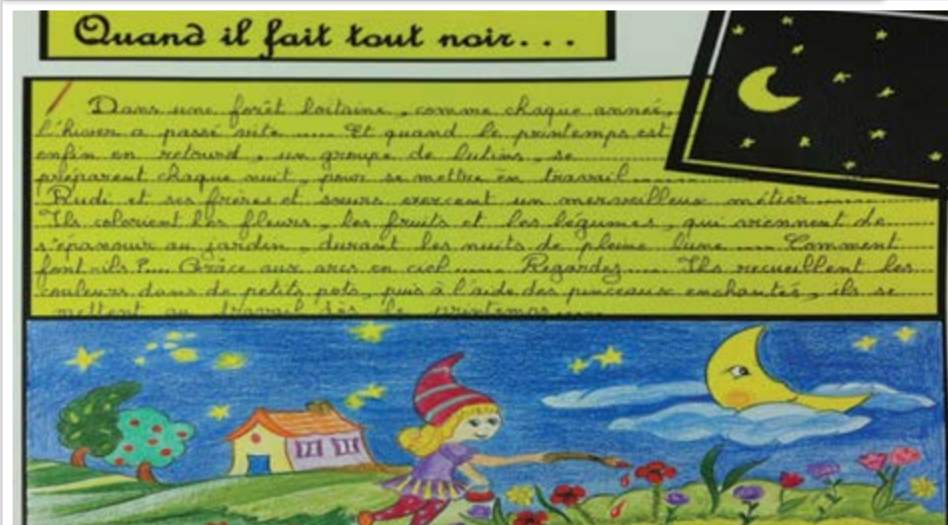 Quand il fait tout noir...
Dans une forêt lointaine, comme chaque année,
l'hiver a passé vite ..... Et quand le printemps est
enfin en retourd, un groupe de lutins, se
préparent chaque nuit, pour se mettre en travail.....
Rudi et ses frères et sœurs exercent un merveilleux métier.....
Ils colorient les fleurs, les fruits et les légumes, qui viennent de
s'épanouir au jardin, durant les nuits de pleine lune..... Comment
font-ils ?... Grâce aux arcs en ciel..... Regardez.... Ils recueillent les
couleurs dans de petits pots, puis à l'aide des pinceaux enchantés, ils se
mettent au travail dès le printemps.....